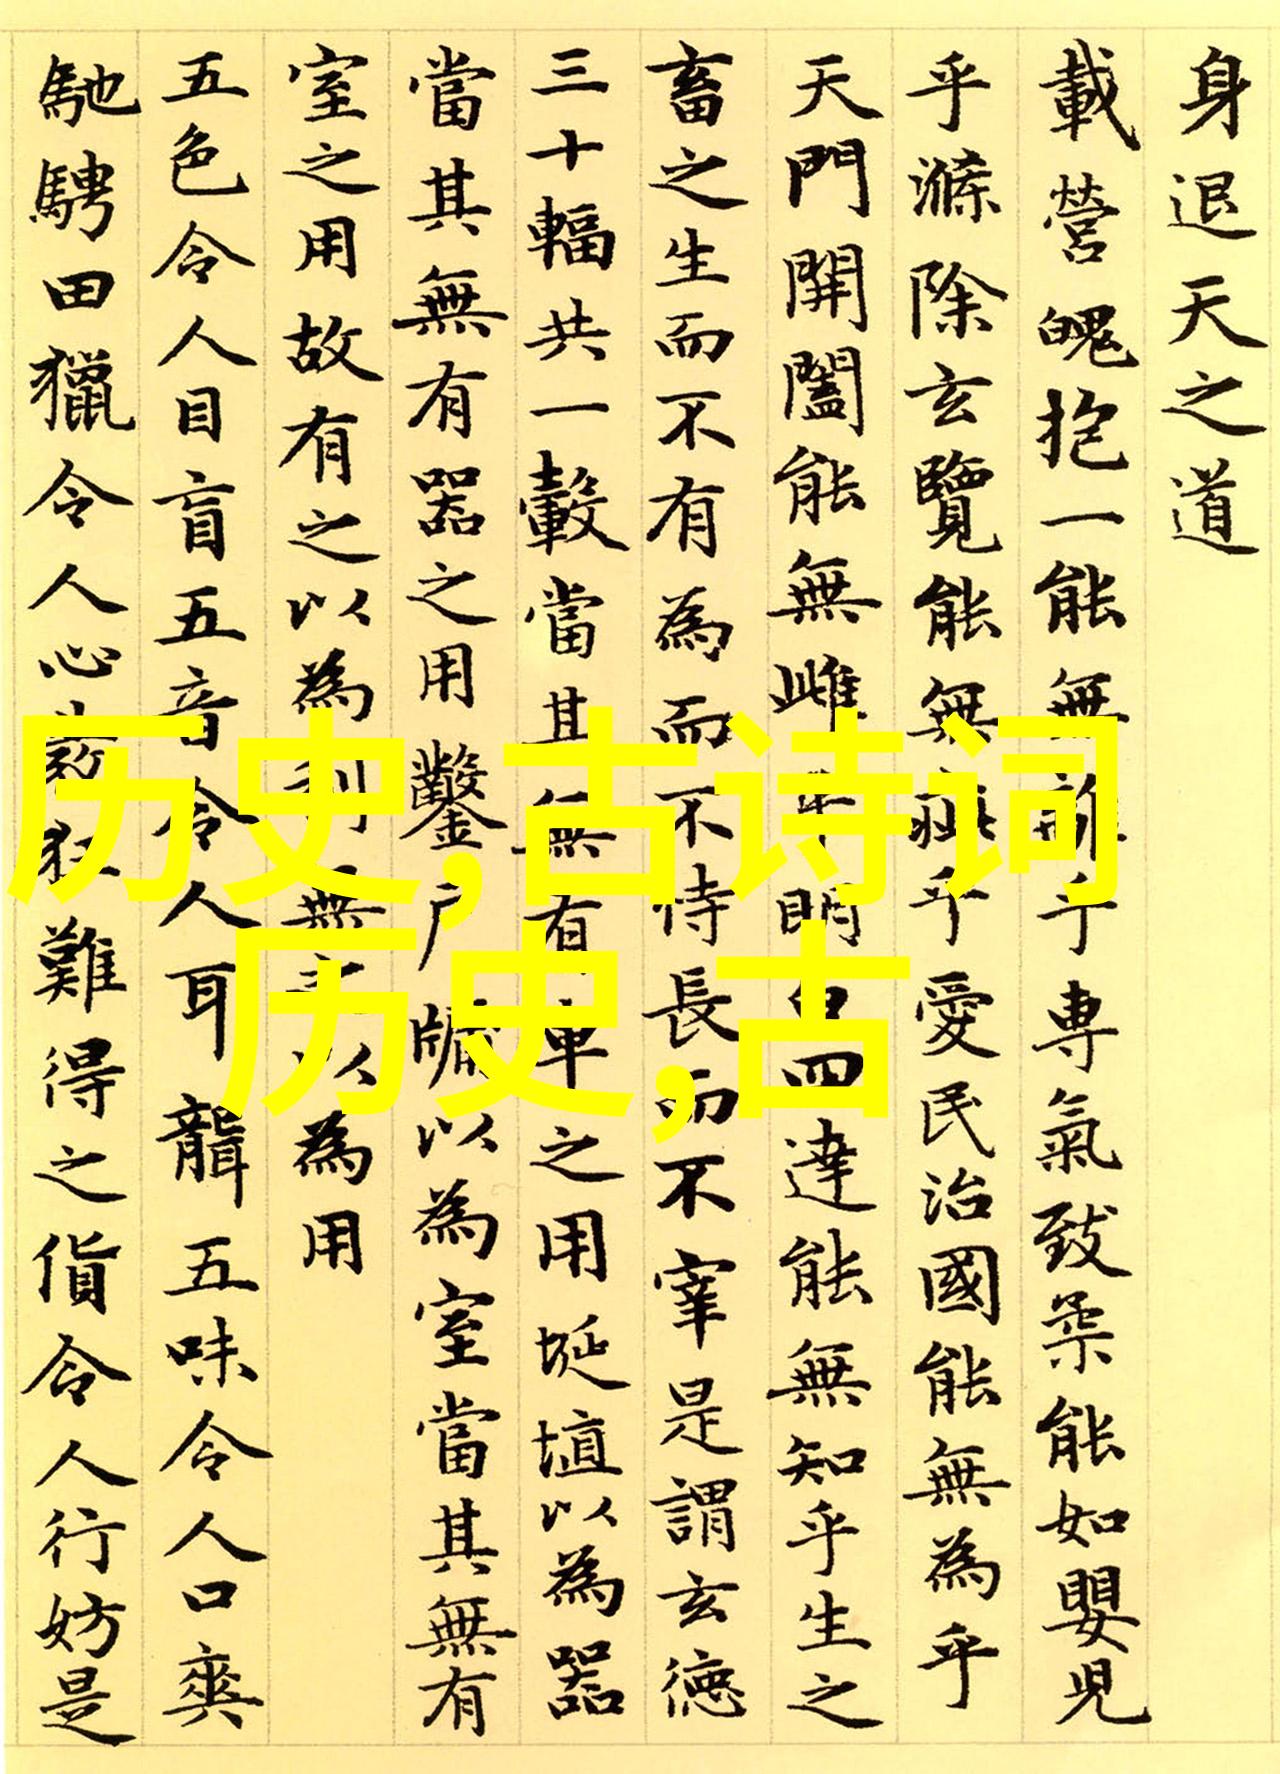 身退天之道
載營魄抱一能無離乎專氣致柔能如嬰兒
乎滌除玄覽能無疵乎愛民治國能無為乎
天門開闔能無雌乎明白四達能無知乎生之
畜之生而不有為而不恃長而不宰是謂玄德
三十輻共一轂當其無有車之用埏埴以為器
當其無有器之用鑿戶牖以為室當其無有
室之用故有之以為利無之以為用
五色令人目盲五音令人耳聾五味令人口爽
馳騁田獵令人心發狂難得之貨令人行妨是
历史,古诗词
历史,古